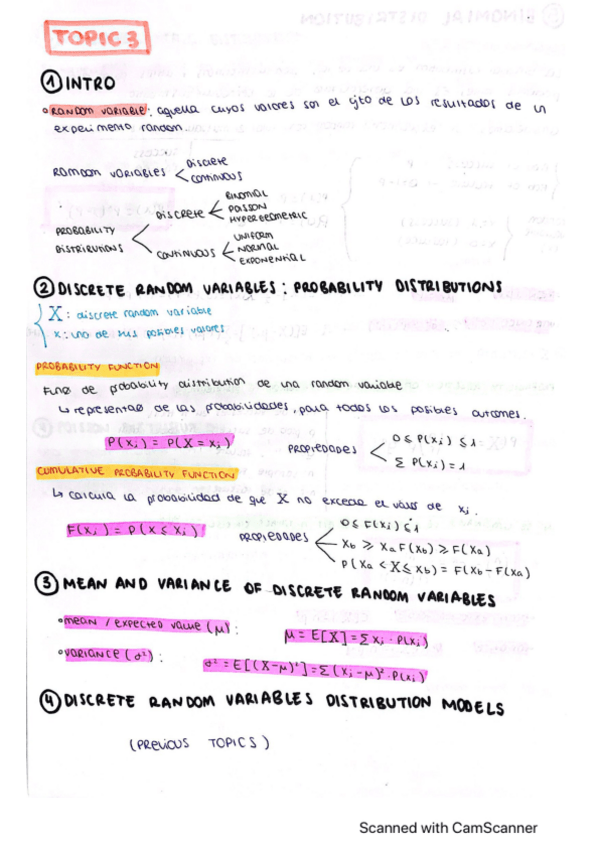 TOPIC 3
① INTRO
• RANDOM VARIABLE: aquella cuyos valores son el cjto de los resultados de un
experimento random.
RAMDOM VARIABLES < DISCRETE
CONTINUOUS
PROBABILITY DISTRIBUTIONS < DISCRETE < BINOMIAL
POISSON
HYPERGEOMETRIC
CONTINUOUS < UNIFORM
NORMAL
EXPONENTIAL
② DISCRETE RANDOM VARIABLES: PROBABILITY DISTRIBUTIONS
X: discrete random variable
x: uno de sus posibles valores
PROBABILITY FUNCTION
Func de probability distribution de una random variable
↳ representac de las probabilidades, para todos los posibles outcomes.
P(xi) = P(X = xi)
PROPIEDADES < 0 ≤ P(xi) ≤ 1
Σ P(xi) = 1
CUMULATIVE PROBABILITY FUNCTION
↳ calcula la probabilidad de que X no exceda el valor de xi.
F(xi) = P(X ≤ xi)
PROPIEDADES < 0 ≤ F(xi) ≤ 1
xb ≥ xa F(xb) ≥ F(xa)
P(xa < X ≤ xb) = F(xb) - F(xa)
③ MEAN AND VARIANCE OF DISCRETE RANDOM VARIABLES
• mean / expected value (μ): μ = E[X] = Σ xi · P(xi)
• VARIANCE (σ²): σ² = E[(X-μ)²] = Σ (xi - μ)² · P(xi)
④ DISCRETE RANDOM VARIABLES DISTRIBUTION MODELS
(PREVIOUS TOPICS)
Scanned with CamScanner